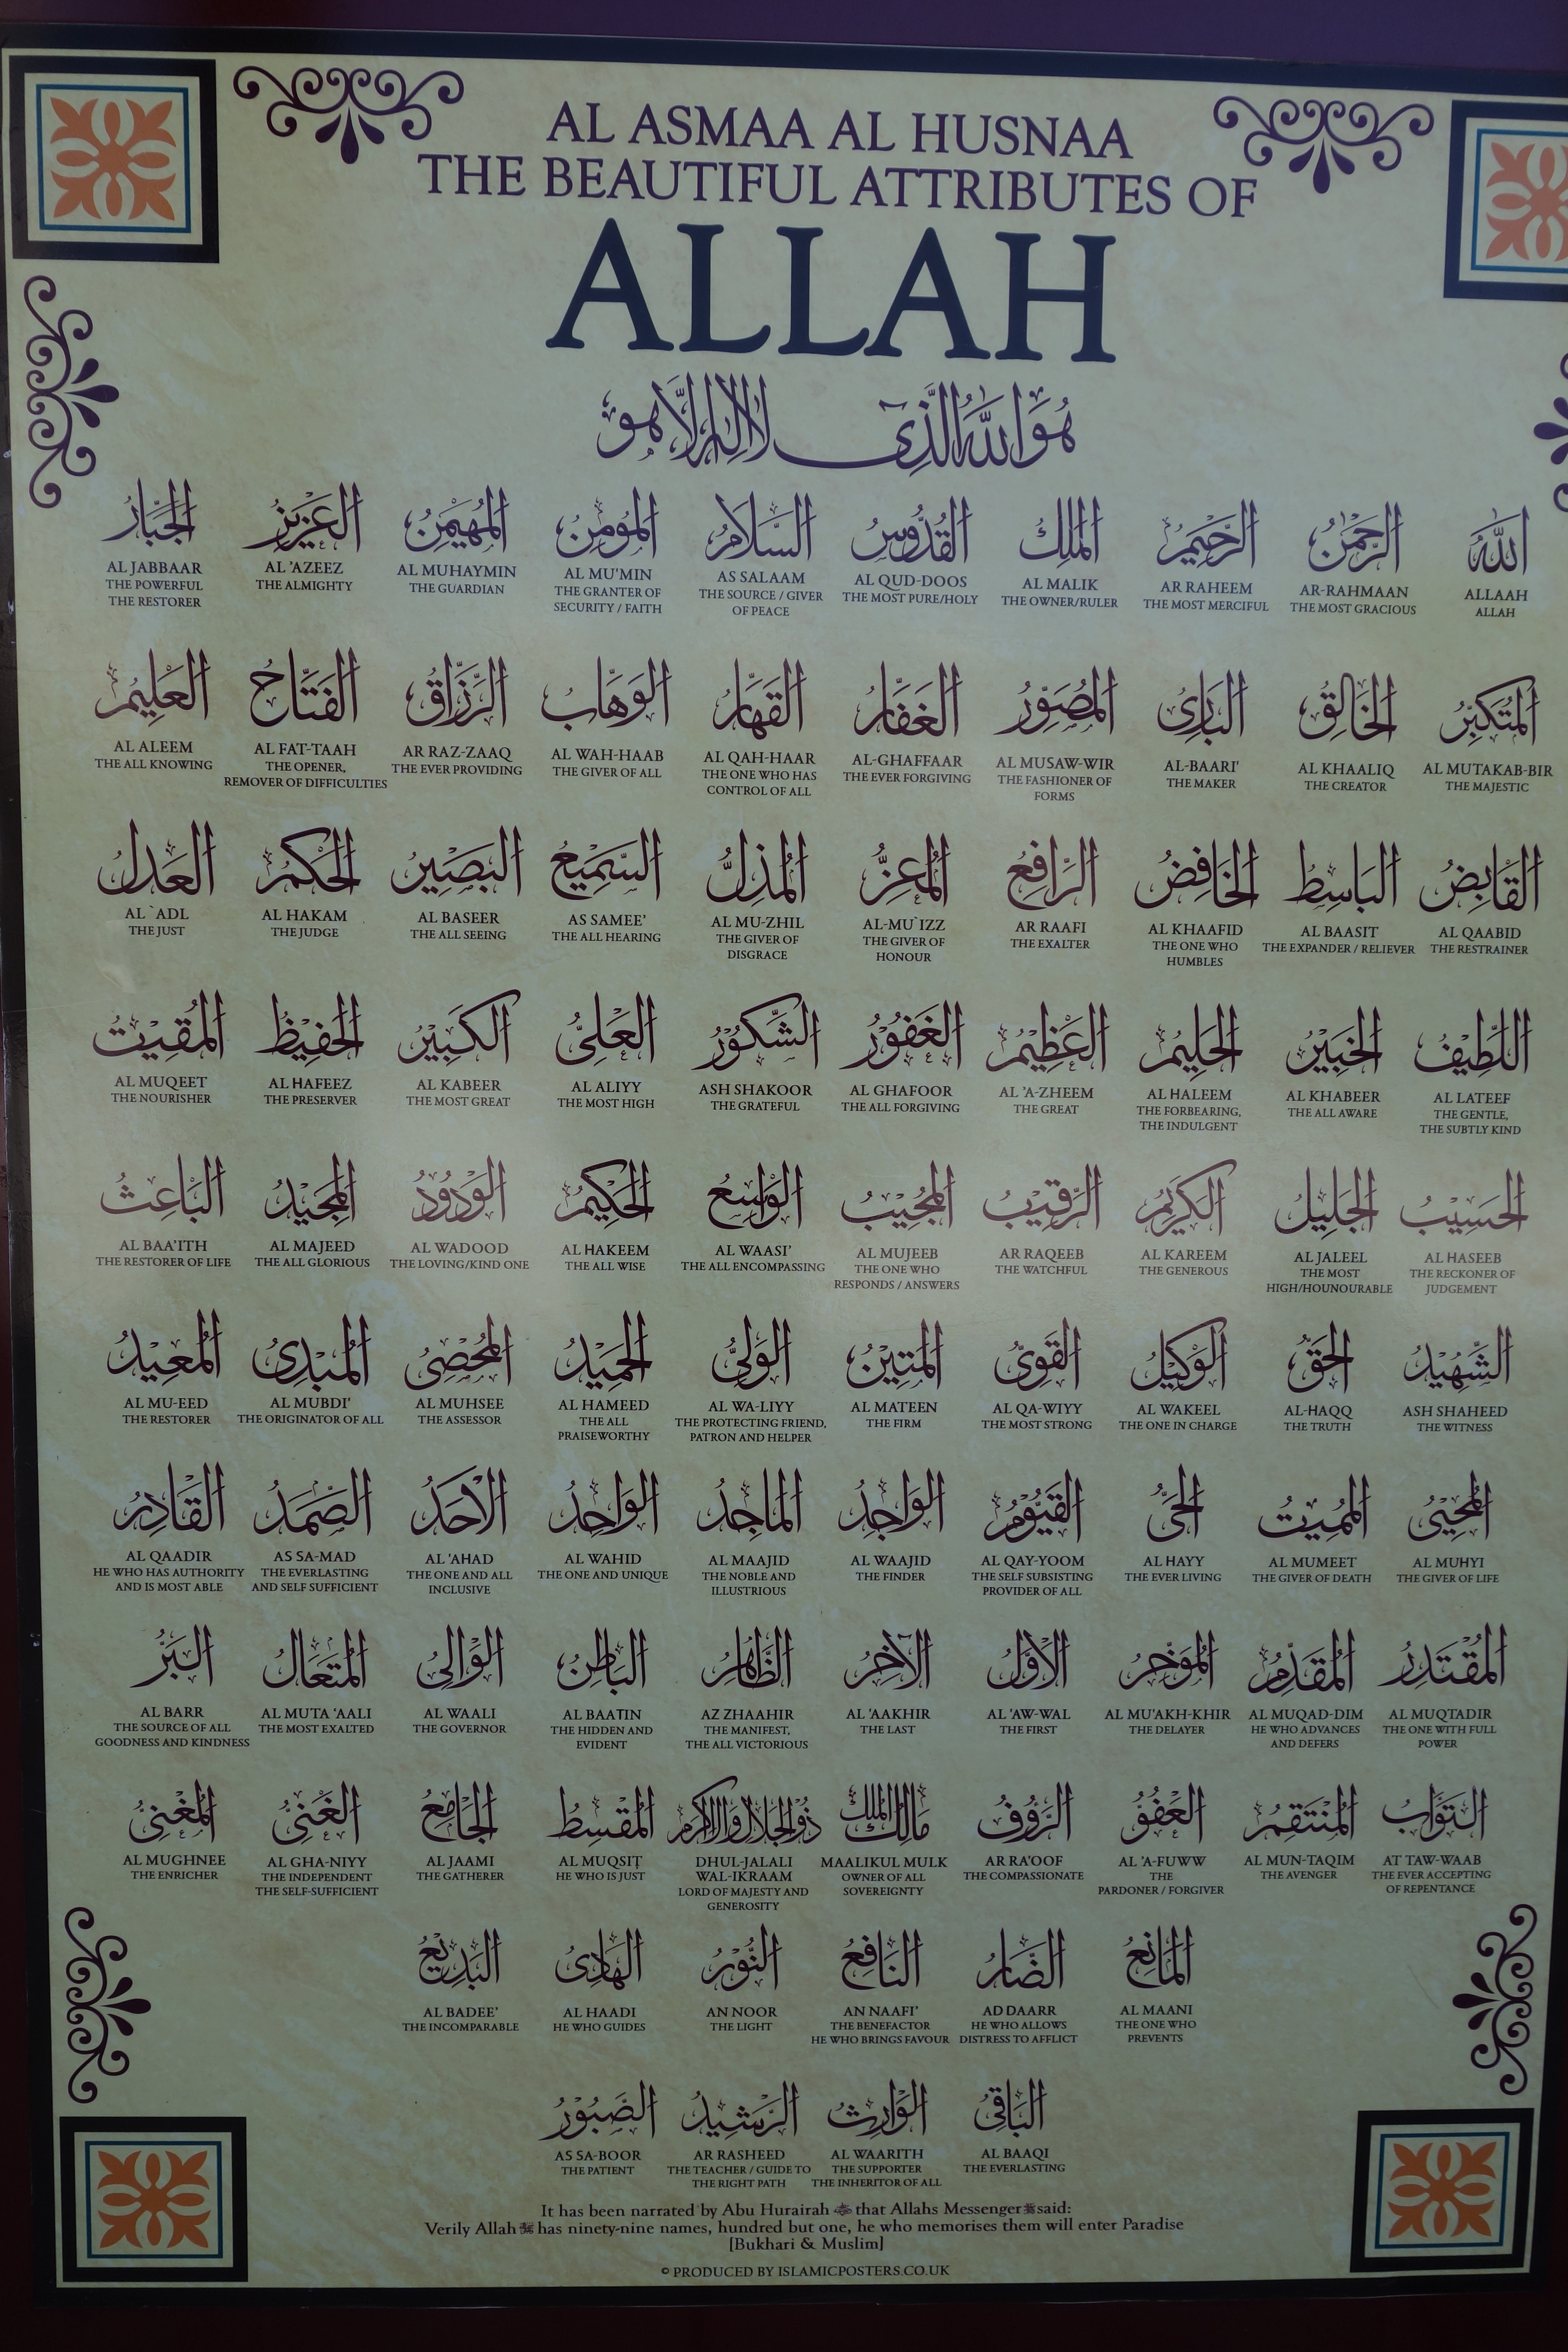 AL ASMAA AL HUSNAA
THE BEAUTIFUL ATTRIBUTES OF
ALLAH
هُوَ اللهُ الَّذِي لَا إِلٰهَ إِلَّا هُوَ
اللهُ الرَّحْمٰنُ الرَّحِيْمُ الْمَلِكُ الْقُدُّوسُ السَّلَامُ الْمُؤْمِنُ الْمُهَيْمِنُ الْعَزِيْزُ الْجَبَّارُ
AL JABBAAR AL 'AZEEZ AL MUHAYMIN AL MU'MIN AS SALAAM AL QUD-DOOS AL MALIK AR RAHEEM AR-RAHMAAN ALLAAH
THE POWERFUL THE ALMIGHTY THE GUARDIAN THE GRANTER OF THE SOURCE / GIVER THE MOST PURE/HOLY THE OWNER/RULER THE MOST MERCIFUL THE MOST GRACIOUS ALLAH
THE RESTORER SECURITY / FAITH OF PEACE
الْمُتَكَبِّرُ الْخَالِقُ الْبَارِئُ الْمُصَوِّرُ الْغَفَّارُ الْقَهَّارُ الْوَهَّابُ الرَّزَّاقُ الْفَتَّاحُ الْعَلِيْمُ
AL ALEEM AL FAT-TAAH AR RAZ-ZAAQ AL WAH-HAAB AL QAH-HAAR AL-GHAFFAAR AL MUSAW-WIR AL-BAARI' AL KHAALIQ AL MUTAKAB-BIR
THE ALL KNOWING THE OPENER, THE EVER PROVIDING THE GIVER OF ALL THE ONE WHO HAS THE EVER FORGIVING THE FASHIONER OF THE MAKER THE CREATOR THE MAJESTIC
REMOVER OF DIFFICULTIES CONTROL OF ALL FORMS
الْقَابِضُ الْبَاسِطُ الْخَافِضُ الرَّافِعُ الْمُعِزُّ الْمُذِلُّ السَّمِيْعُ الْبَصِيْرُ الْحَكَمُ الْعَدْلُ
AL `ADL AL HAKAM AL BASEER AS SAMEE' AL MU-ZHIL AL-MU`IZZ AR RAAFI AL KHAAFID AL BAASIT AL QAABID
THE JUST THE JUDGE THE ALL SEEING THE ALL HEARING THE GIVER OF THE GIVER OF THE EXALTER THE ONE WHO THE EXPANDER / RELIEVER THE RESTRAINER
DISGRACE HONOUR HUMBLES
اللَّطِيْفُ الْخَبِيْرُ الْحَلِيْمُ الْعَظِيْمُ الْغَفُوْرُ الشَّكُوْرُ الْعَلِيُّ الْكَبِيْرُ الْحَفِيْظُ الْمُقِيْتُ
AL MUQEET AL HAFEEZ AL KABEER AL ALIYY ASH SHAKOOR AL GHAFOOR AL 'A-ZHEEM AL HALEEM AL KHABEER AL LATEEF
THE NOURISHER THE PRESERVER THE MOST GREAT THE MOST HIGH THE GRATEFUL THE ALL FORGIVING THE GREAT THE FORBEARING, THE ALL AWARE THE GENTLE,
THE INDULGENT THE SUBTLY KIND
الْحَسِيْبُ الْجَلِيْلُ الْكَرِيْمُ الرَّقِيْبُ الْمُجِيْبُ الْوَاسِعُ الْحَكِيْمُ الْوَدُوْدُ الْمَجِيْدُ الْبَاعِثُ
AL BAA'ITH AL MAJEED AL WADOOD AL HAKEEM AL WAASI' AL MUJEEB AR RAQEEB AL KAREEM AL JALEEL AL HASEEB
THE RESTORER OF LIFE THE ALL GLORIOUS THE LOVING/KIND ONE THE ALL WISE THE ALL ENCOMPASSING THE ONE WHO THE WATCHFUL THE GENEROUS THE MOST THE RECKONER OF
RESPONDS / ANSWERS HIGH/HOUNOURABLE JUDGEMENT
الشَّهِيْدُ الْحَقُّ الْوَكِيْلُ الْقَوِيُّ الْمَتِيْنُ الْوَلِيُّ الْحَمِيْدُ الْمُحْصِيُ الْمُبْدِئُ الْمُعِيْدُ
AL MU-EED AL MUBDI' AL MUHSEE AL HAMEED AL WA-LIYY AL MATEEN AL QA-WIYY AL WAKEEL AL-HAQQ ASH SHAHEED
THE RESTORER THE ORIGINATOR OF ALL THE ASSESSOR THE ALL THE PROTECTING FRIEND, THE FIRM THE MOST STRONG THE ONE IN CHARGE THE TRUTH THE WITNESS
PRAISEWORTHY PATRON AND HELPER
الْمُحْيِيُ الْمُمِيْتُ الْحَيُّ الْقَيُّوْمُ الْوَاجِدُ الْمَاجِدُ الْوَاحِدُ الْأَحَدُ الصَّمَدُ الْقَادِرُ
AL QAADIR AS SA-MAD AL 'AHAD AL WAHID AL MAAJID AL WAAJID AL QAY-YOOM AL HAYY AL MUMEET AL MUHYI
HE WHO HAS AUTHORITY THE EVERLASTING THE ONE AND ALL THE ONE AND UNIQUE THE NOBLE AND THE FINDER THE SELF SUBSISTING THE EVER LIVING THE GIVER OF DEATH THE GIVER OF LIFE
AND IS MOST ABLE AND SELF SUFFICIENT INCLUSIVE ILLUSTRIOUS PROVIDER OF ALL
الْمُقْتَدِرُ الْمُقَدِّمُ الْمُؤَخِّرُ الْأَوَّلُ الْآخِرُ الظَّاهِرُ الْبَاطِنُ الْوَالِي الْمُتَعَالُ الْبَرُّ
AL BARR AL MUTA 'AALI AL WAALI AL BAATIN AZ ZHAAHIR AL 'AAKHIR AL 'AW-WAL AL MU'AKH-KHIR AL MUQAD-DIM AL MUQTADIR
THE SOURCE OF ALL THE MOST EXALTED THE GOVERNOR THE HIDDEN AND THE MANIFEST, THE LAST THE FIRST THE DELAYER HE WHO ADVANCES THE ONE WITH FULL
GOODNESS AND KINDNESS EVIDENT THE ALL VICTORIOUS AND DEFERS POWER
التَّوَّابُ الْمُنْتَقِمُ الْعَفُوُّ الرَّؤُوفُ مَالِكُ الْمُلْكِ ذُو الْجَلَالِ وَالْإِكْرَامِ الْمُقْسِطُ الْجَامِعُ الْغَنِيُّ الْمُغْنِيُ
AL MUGHNEE AL GHA-NIYY AL JAAMI AL MUQSIT DHUL-JALALI MAALIKUL MULK AR RA'OOF AL 'A-FUWW AL MUN-TAQIM AT TAW-WAAB
THE ENRICHER THE INDEPENDENT THE GATHERER HE WHO IS JUST WAL-IKRAAM OWNER OF ALL THE COMPASSIONATE THE THE AVENGER THE EVER ACCEPTING
THE SELF-SUFFICIENT LORD OF MAJESTY AND SOVEREIGNTY PARDONER / FORGIVER OF REPENTANCE
GENEROSITY
الْمَانِعُ الضَّارُّ النَّافِعُ النُّوْرُ الْهَادِي الْبَدِيْعُ
AL BADEE' AL HAADI AN NOOR AN NAAFI' AD DAARR AL MAANI
THE INCOMPARABLE HE WHO GUIDES THE LIGHT THE BENEFACTOR HE WHO ALLOWS THE ONE WHO
HE WHO BRINGS FAVOUR DISTRESS TO AFFLICT PREVENTS
الْبَاقِي الْوَارِثُ الرَّشِيْدُ الصَّبُوْرُ
AS SA-BOOR AR RASHEED AL WAARITH AL BAAQI
THE PATIENT THE TEACHER / GUIDE TO THE SUPPORTER THE EVERLASTING
THE RIGHT PATH THE INHERITOR OF ALL
It has been narrated by Abu Hurairah that Allahs Messenger ﷺ said:
Verily Allah has ninety-nine names, hundred but one, he who memorises them will enter Paradise
[Bukhari & Muslim]
© PRODUCED BY ISLAMICPOSTERS.CO.UK